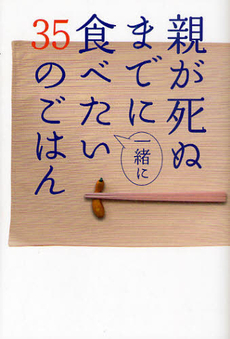 親が死ぬ
までに
一緒に
食べたい
35のごはん